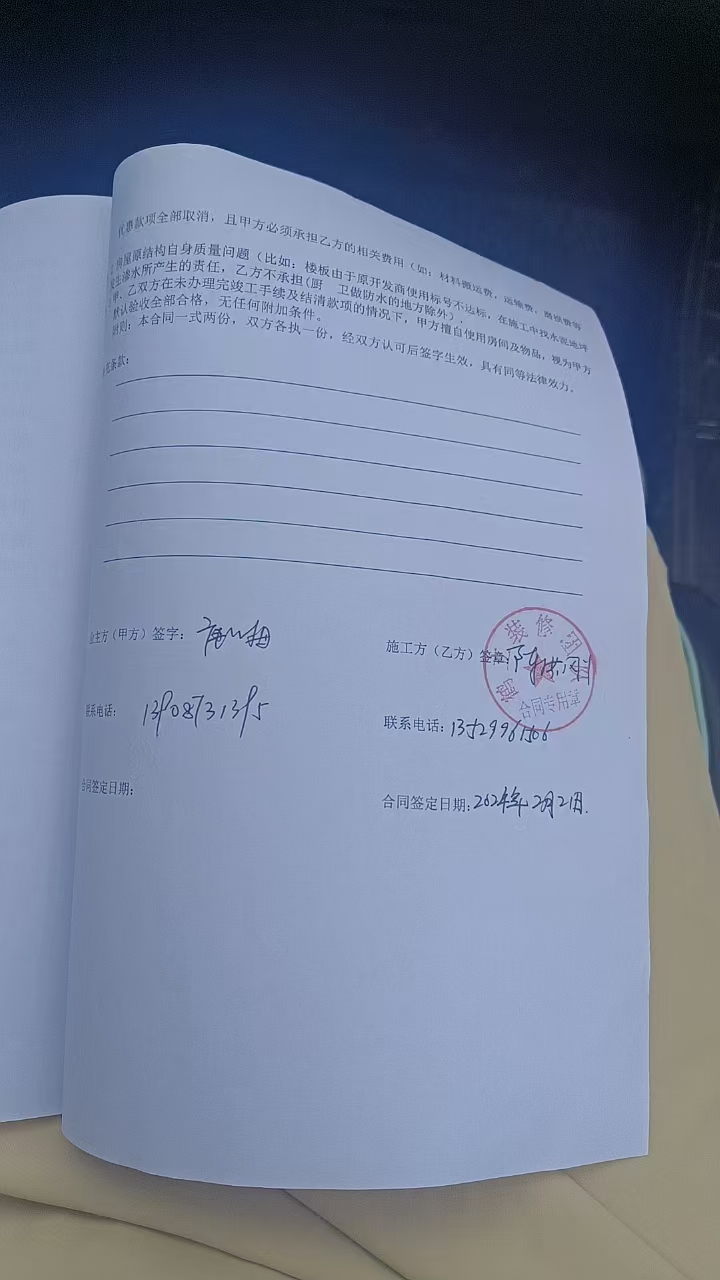 优惠款项全部取消，且甲方必须承担乙方的相关费用（如：材料搬运费，运输费，磨损费等
房屋原结构自身质量问题（比如：楼板由于原开发商使用标号不达标，在施工中找水泥地坪
发生渗水所产生的责任，乙方不承担(厨 卫做防水的地方除外）．
甲、乙双方在未办理完竣工手续及结清款项的情况下，甲方擅自使用房间及物品，视为甲方
默认验收全部合格，无任何附加条件。
附则：本合同一式两份，双方各执一份，经双方认可后签字生效，具有同等法律效力。
充条款：
业主方（甲方）签字：
施工方（乙方）签章：
装修
合同专用章
联系电话： 13908731395
联系电话：13529961506
合同签定日期：
合同签定日期：2024年2月21日.